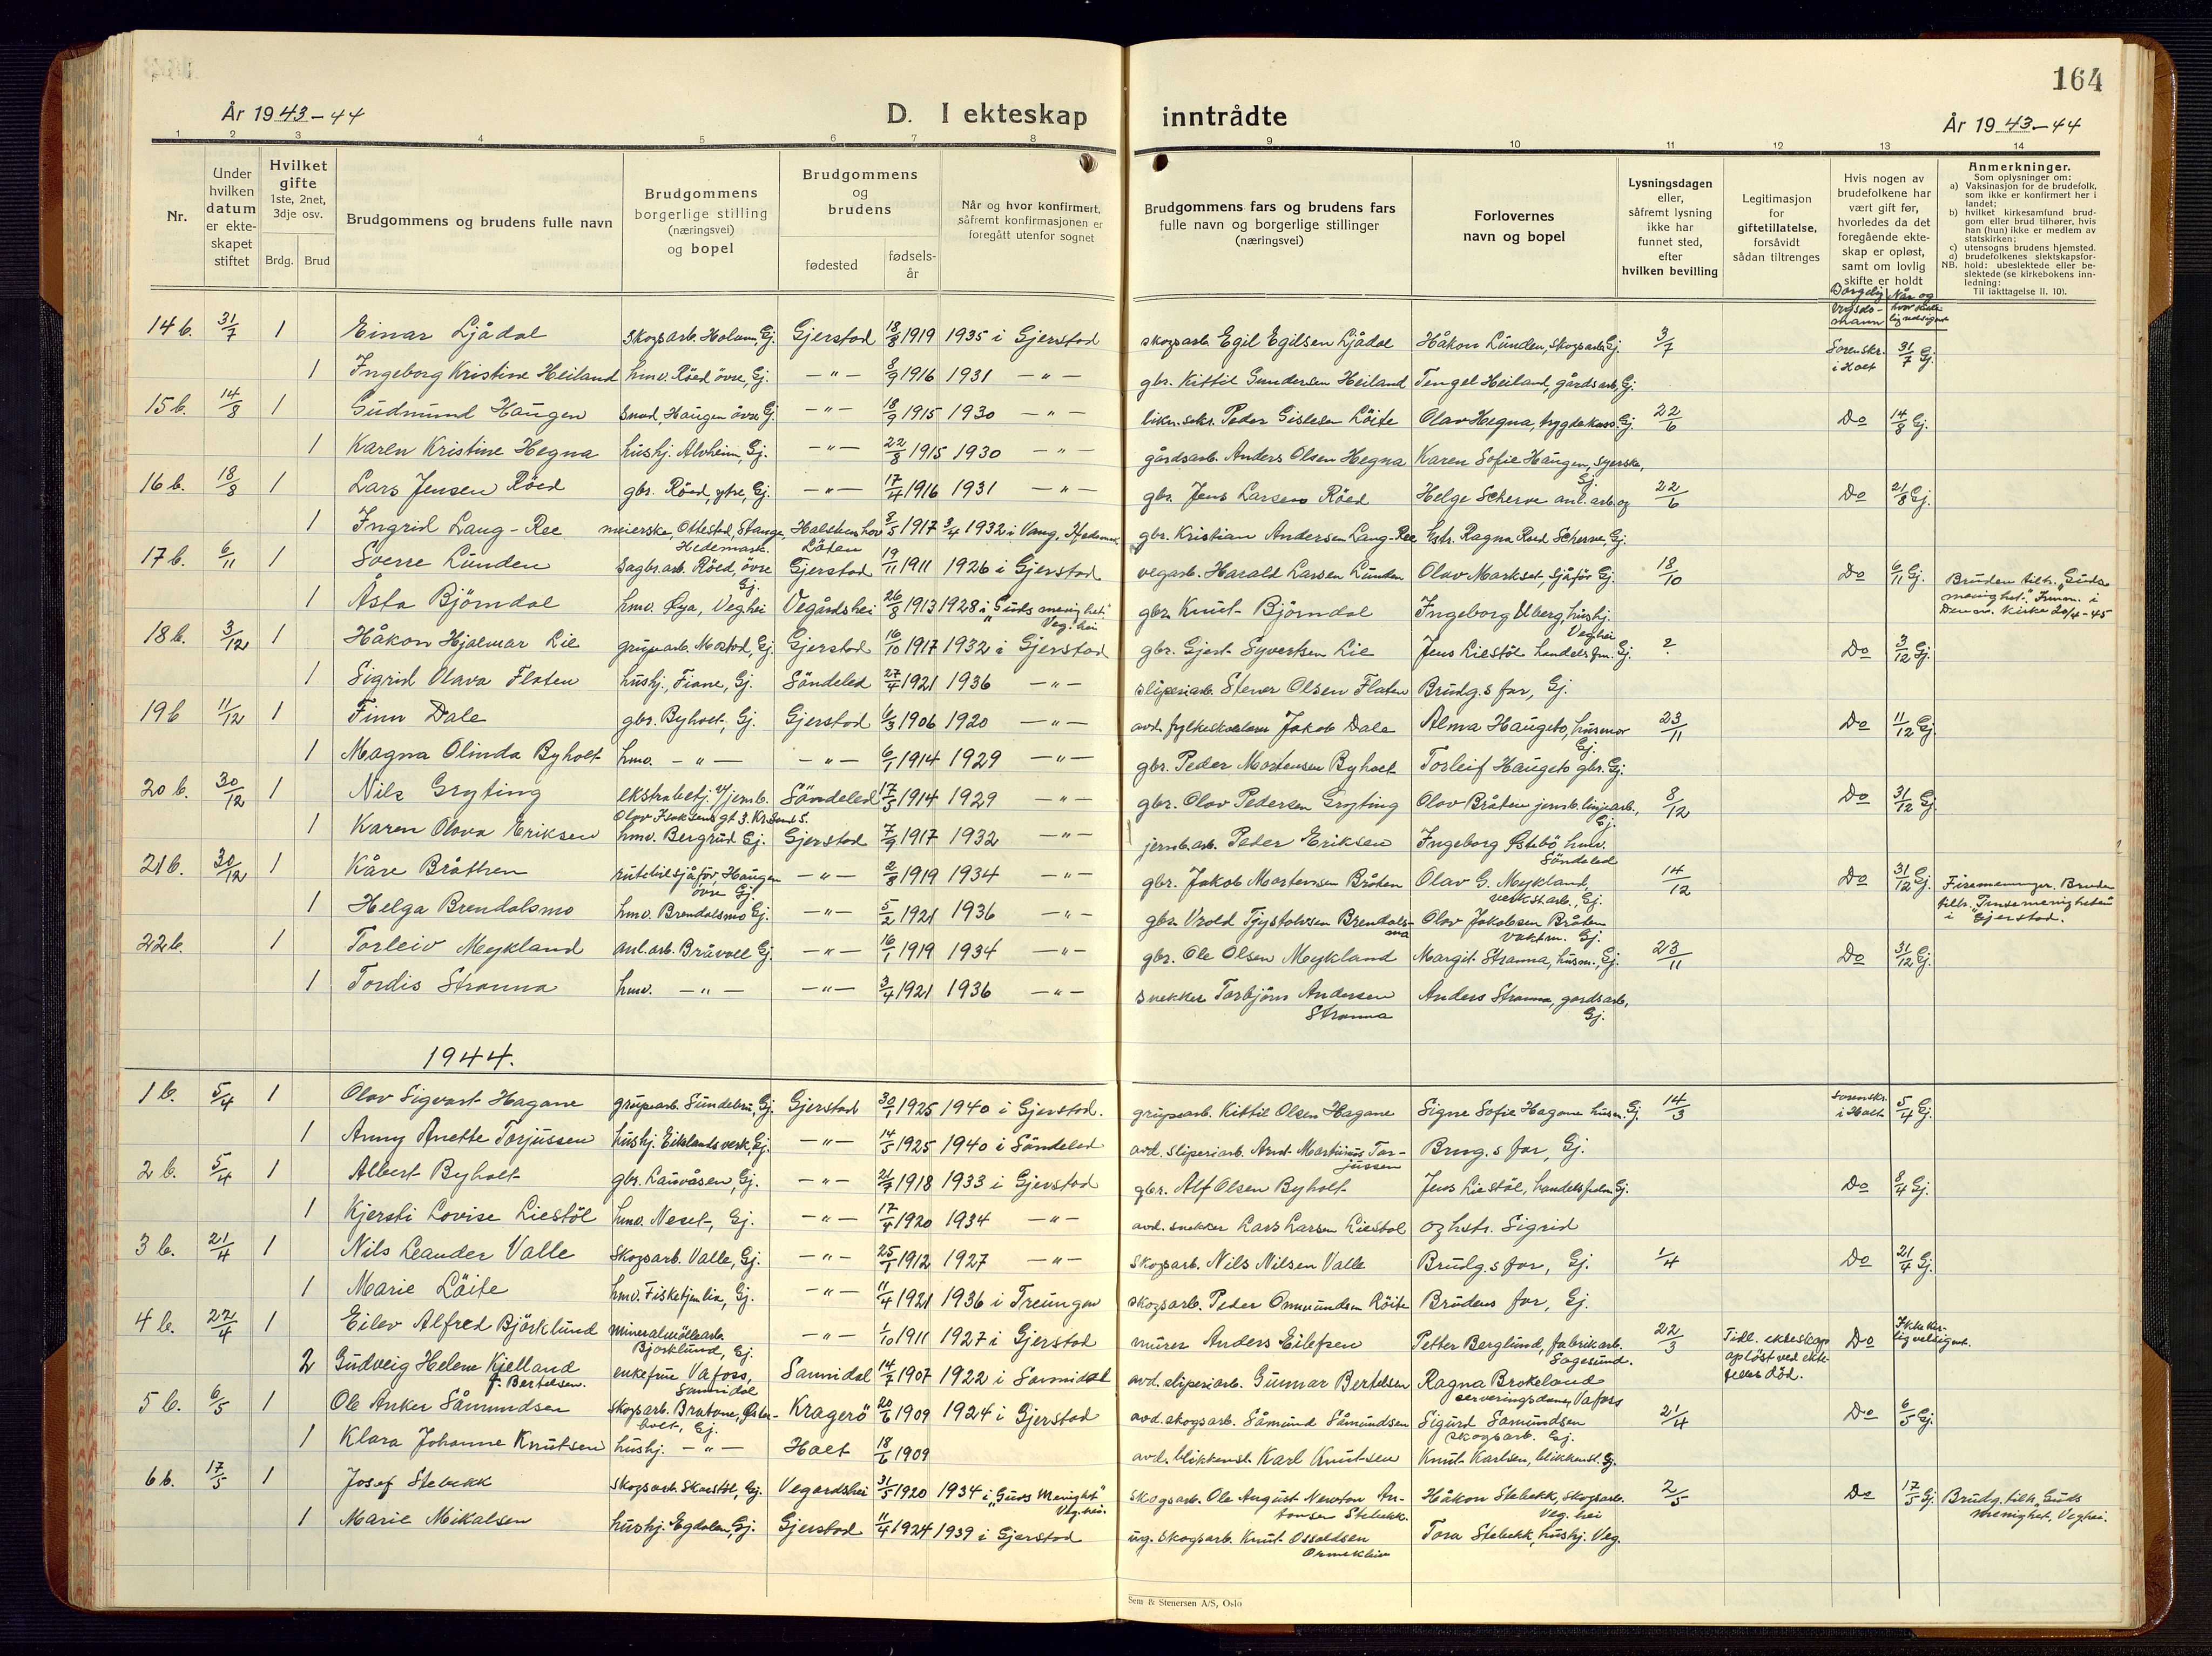 164
År 1943-44
D. I ekteskap inntrådte
År 1943-44
1 2 3 4 5 6 7 8 9 10 11 12 13 14
Nr.
Under hvilken datum er ekteskapet stiftet
Hvilket gifte 1ste, 2net, 3dje osv.
Brdg. Brud
Brudgommens og brudens fulle navn
Brudgommens borgerlige stilling (næringsvei) og bopel
Brudgommens og brudens
fødested
fødselsår
Når og hvor konfirmert, såfremt konfirmasjonen er foregått utenfor sognet
Brudgommens fars og brudens fars fulle navn og borgerlige stillinger (næringsvei)
Forlovernes navn og bopel
Lysningsdagen eller, såfremt lysning ikke har funnet sted, efter hvilken bevilling
Legitimasjon for giftetillatelse, forsåvidt sådan tiltrenges
Hvis nogen av brudefolkene har vært gift før, hvorledes da det foregående ekteskap er opløst, samt om lovlig skifte er holdt
Anmerkninger.
Som oplysninger om:
a) Vaksinasjon for de brudefolk, som ikke er konfirmert her i landet;
b) hvilket kirkesamfund brudgom eller brud tilhører, hvis han (hun) ikke er medlem av statskirken;
c) utensogns brudens hjemsted.
d) brudefolkenes slektskapsforhold: ubeslektede eller beslektede (se kirkebokens innledning:
NB.
Til iakttagelse II. 10).
14 b. 31/7 1 Einar Ljådal skogsarb. Holum, Gj. Gjerstad 18/3 1919 1935 i Gjerstad skogsarb. Egil Egilsen Ljådal Håkon Lunden, skogsarb. Gj. 3/7 Sorenskr. i Holt 31/7 Gj.
1 Ingeborg Kristine Heiland hmv. Röed övre, Gj. -"- 8/9 1916 1931 -"- gbr. Kittil Gundersen Heiland Tengel Heiland, gårdsarb. Gj.
15 b. 14/8 1 Gudmund Haugen sned. Haugen övre Gj. -"- 18/9 1915 1930 -"- likn.sekr. Peder Gislesen Löite Olav Hegna, trygdekass. Gj. 22/6 Do 14/8 Gj.
1 Karen Kristine Hegna hushj. Alvheim, Gj. -"- 22/8 1915 1930 -"- gårdsarb. Anders Olsen Hegna Karen Sofie Haugen, syerske, Gj.
16 b. 18/8 1 Lars Jensen Röed gbr. Röed, ytre, Gj. -"- 17/4 1916 1931 -"- gbr. Jens Larsen Röed Helge Scherve anl. arb. og 22/6 Do 21/8 Gj.
1 Ingrid Laug-Ree meierske, Ottestad, Stange Hedemark. Halstenshov Löten 8/5 1917 3/4 1932 i Vang, Hedmark gbr. Kristian Andersen Laug-Ree hstr. Ragna Roed Scherve, Gj.
17 b. 6/11 1 Sverre Lunden sagbr.arb. Röed, övre Gj. Gjerstad 19/11 1911 1926 i Gjerstad vegarb. Harald Larsen Lunden Olav Markset, sjåför Gj. 18/10 Do 6/11 Gj.
1 Åsta Björndal hmv. Øya, Veghei Vegårdshei 26/8 1913 1928 i "Guds menighet" Veg.hei gbr. Knut Björndal Ingeborg Elberg, hushj. Veghei Bruden tilh. "Guds menighet". Innm. i Den n. Kirke 20/4-45
18 b. 3/12 1 Håkon Hjalmar Lie grupearb. Mostad, Gj. Gjerstad 16/10 1917 1932 i Gjerstad gbr. Gjert Syvertsen Lie Jens Liestöl handelsfm. Gj. ? Do 3/12 Gj.
1 Sigrid Olava Flaten hushj., Fiane, Gj. Söndeled 27/4 1921 1936 -"- sliperiarb. Stener Olsen Flaten Brudg.s far, Gj.
19 b 11/12 1 Finn Dale gbr. Byholt, Gj. Gjerstad 6/3 1906 1920 -"- avd. fylkesskolem Jakob Dale Alma Haugeto, husmor Gj. 23/11 Do 11/12 Gj.
1 Magna Olinda Byholt hmv. -"- -"- 6/1 1914 1929 -"- gbr. Peder Mortensen Byholt Torleif Haugeto gbr. Gj.
20 b. 30/12 1 Nils Gryting ekstrabetj. v/jernb. Olav Isaksens gt 3. Kr.sand S. Söndeled 17/5 1914 1929 gbr. Olav Pedersen Gryting Olav Bråten jernb. linjearb., Gj. 8/12 Do 31/12 Gj.
1 Karen Olava Eriksen hmv. Bergrud Gj. Gjerstad 7/9 1917 1932 -"- jernb.arb. Peder Eriksen Ingeborg Østebö hmv. Söndeled
21 b. 30/12 1 Kåre Bråthen rutebilsjåför Haugen övre Gj. -"- 2/8 1919 1934 -"- gbr. Jakob Mortensen Bråten Olav G. Mykland, verkst.arb., Gj. 14/12 Do 31/12 Gj.
1 Helga Brendalsmo hmv. Brendalsmo Gj. -"- 5/2 1921 1936 -"- gbr. Vrold Tjøstolvsen Brendalsmo Olav Jakobsen Bråten vaktm. Gj. Firemenninger. Bruden tilh. Pinsemenigheten i Gjerstad.
22 b. 1 Torleiv Mykland anl.arb. Bråvoll Gj. -"- 16/1 1919 1934 -"- gbr. Ole Olsen Mykland Margit Stranna, husm., Gj. 23/11 Do 31/12 Gj.
1 Tordis Stranna hmv. -"- -"- 3/4 1921 1936 -"- snekker Torbjörn Andersen Stranna Anders Stranna, gardsarb, Gj.
1944.
1 b. 5/4 1 Olav Sigvart Hagane grupearb. Sundebru, Gj. Gjerstad 30/1 1925 1940 i Gjerstad. grupearb. Kittil Olsen Hagane Signe Sofie Hagane husm. Gj. 14/3 Sorenskr. i Holt 5/4 Gj.
1 Anny Anette Torjussen hushj. Eiklands verk, Gj. -"- 14/5 1925 1940 i Söndeled avd. sliperiarb. Arnt Martinius Torjussen Brudg.s far, Gj.
2 b. 5/4 1 Albert Byholt gbr. Lauvåsen, Gj. -"- 21/7 1918 1933 i Gjerstad gbr. Alf Olsen Byholt Jens Liestöl, handelsfullm Gj. Do 8/4 Gj.
1 Kjersti Lovise Liestöl hmv. Neset, Gj. -"- 17/4 1920 1934 -"- avd. snekker Lars Larsen Liestöl og hstr. Sigrid
3 b. 21/4 1 Nils Leander Valle skogsarb. Valle, Gj. -"- 25/1 1912 1927 -"- skogsarb. Nils Nilsen Valle Brudg.s far, Gj. 1/4 Do 21/4 Gj.
1 Marie Löite hmv. Fisketjenlia, Gj. -"- 11/4 1921 1936 i Treungen skogsarb. Peder Omundsen Röite Brudens far, Gj.
4 b. 22/4 1 Eilev Alfred Björklund mineralmöllearb. Björklund, Gj. -"- 1/10 1911 1927 i Gjerstad murer Anders Eilefsen Petter Berglund, fabrikarb. Sagesund. 22/3 Tidl. ekteskap opløst ved ektefelles död. Do Ikke kirkelig velsignet.
2 Gudveig Helene Kjelland f. Bertelsen. enkefrue Vafoss, Sannidal Sannidal 14/7 1907 1922 i Sannidal avd. sliperiarb. Gunnar Bertelsen Ragna Brokeland serveringsdame, Vafoss
5 b. 6/5 1 Ole Anker Såmundsen skogsarb. Bratane, Østerholt, Gj. Kragerö 20/6 1909 1924 i Gjerstad avd. skogsarb. Såmund Såmundsen Sigurd Samundsen skogsarb. Gj. 21/4 Do 6/5 Gj.
1 Klara Johanne Knutsen hushj. -"- Holt 18/6 1909 avd. blikkensl. Karl Knutsen Knut Karlsen, blikkensl. Gj.
6 b. 17/5 1 Josef Stebekk skogsarb. Skorstöl, Gj. Vegardshei 31/5 1920 1934 i "Guds Menight" Veg.hei. skogsarb. Ole August Newton Antonsen Stebekk. Håkon Stebekk, skogsarb. Veg.hei 2/5 Do 17/5 Gj. Brudg. tilh. Guds menighet, Veghei.
1 Marie Mikalsen hushj. Egdalen, Gj. Gjerstad 11/4 1924 1939 i Gjerstad ug. skogsarb. Knut Osvaldsen Ormekleiv Tora Stebekk, hushj. Veg.
Sem & Stenersen A/S, Oslo